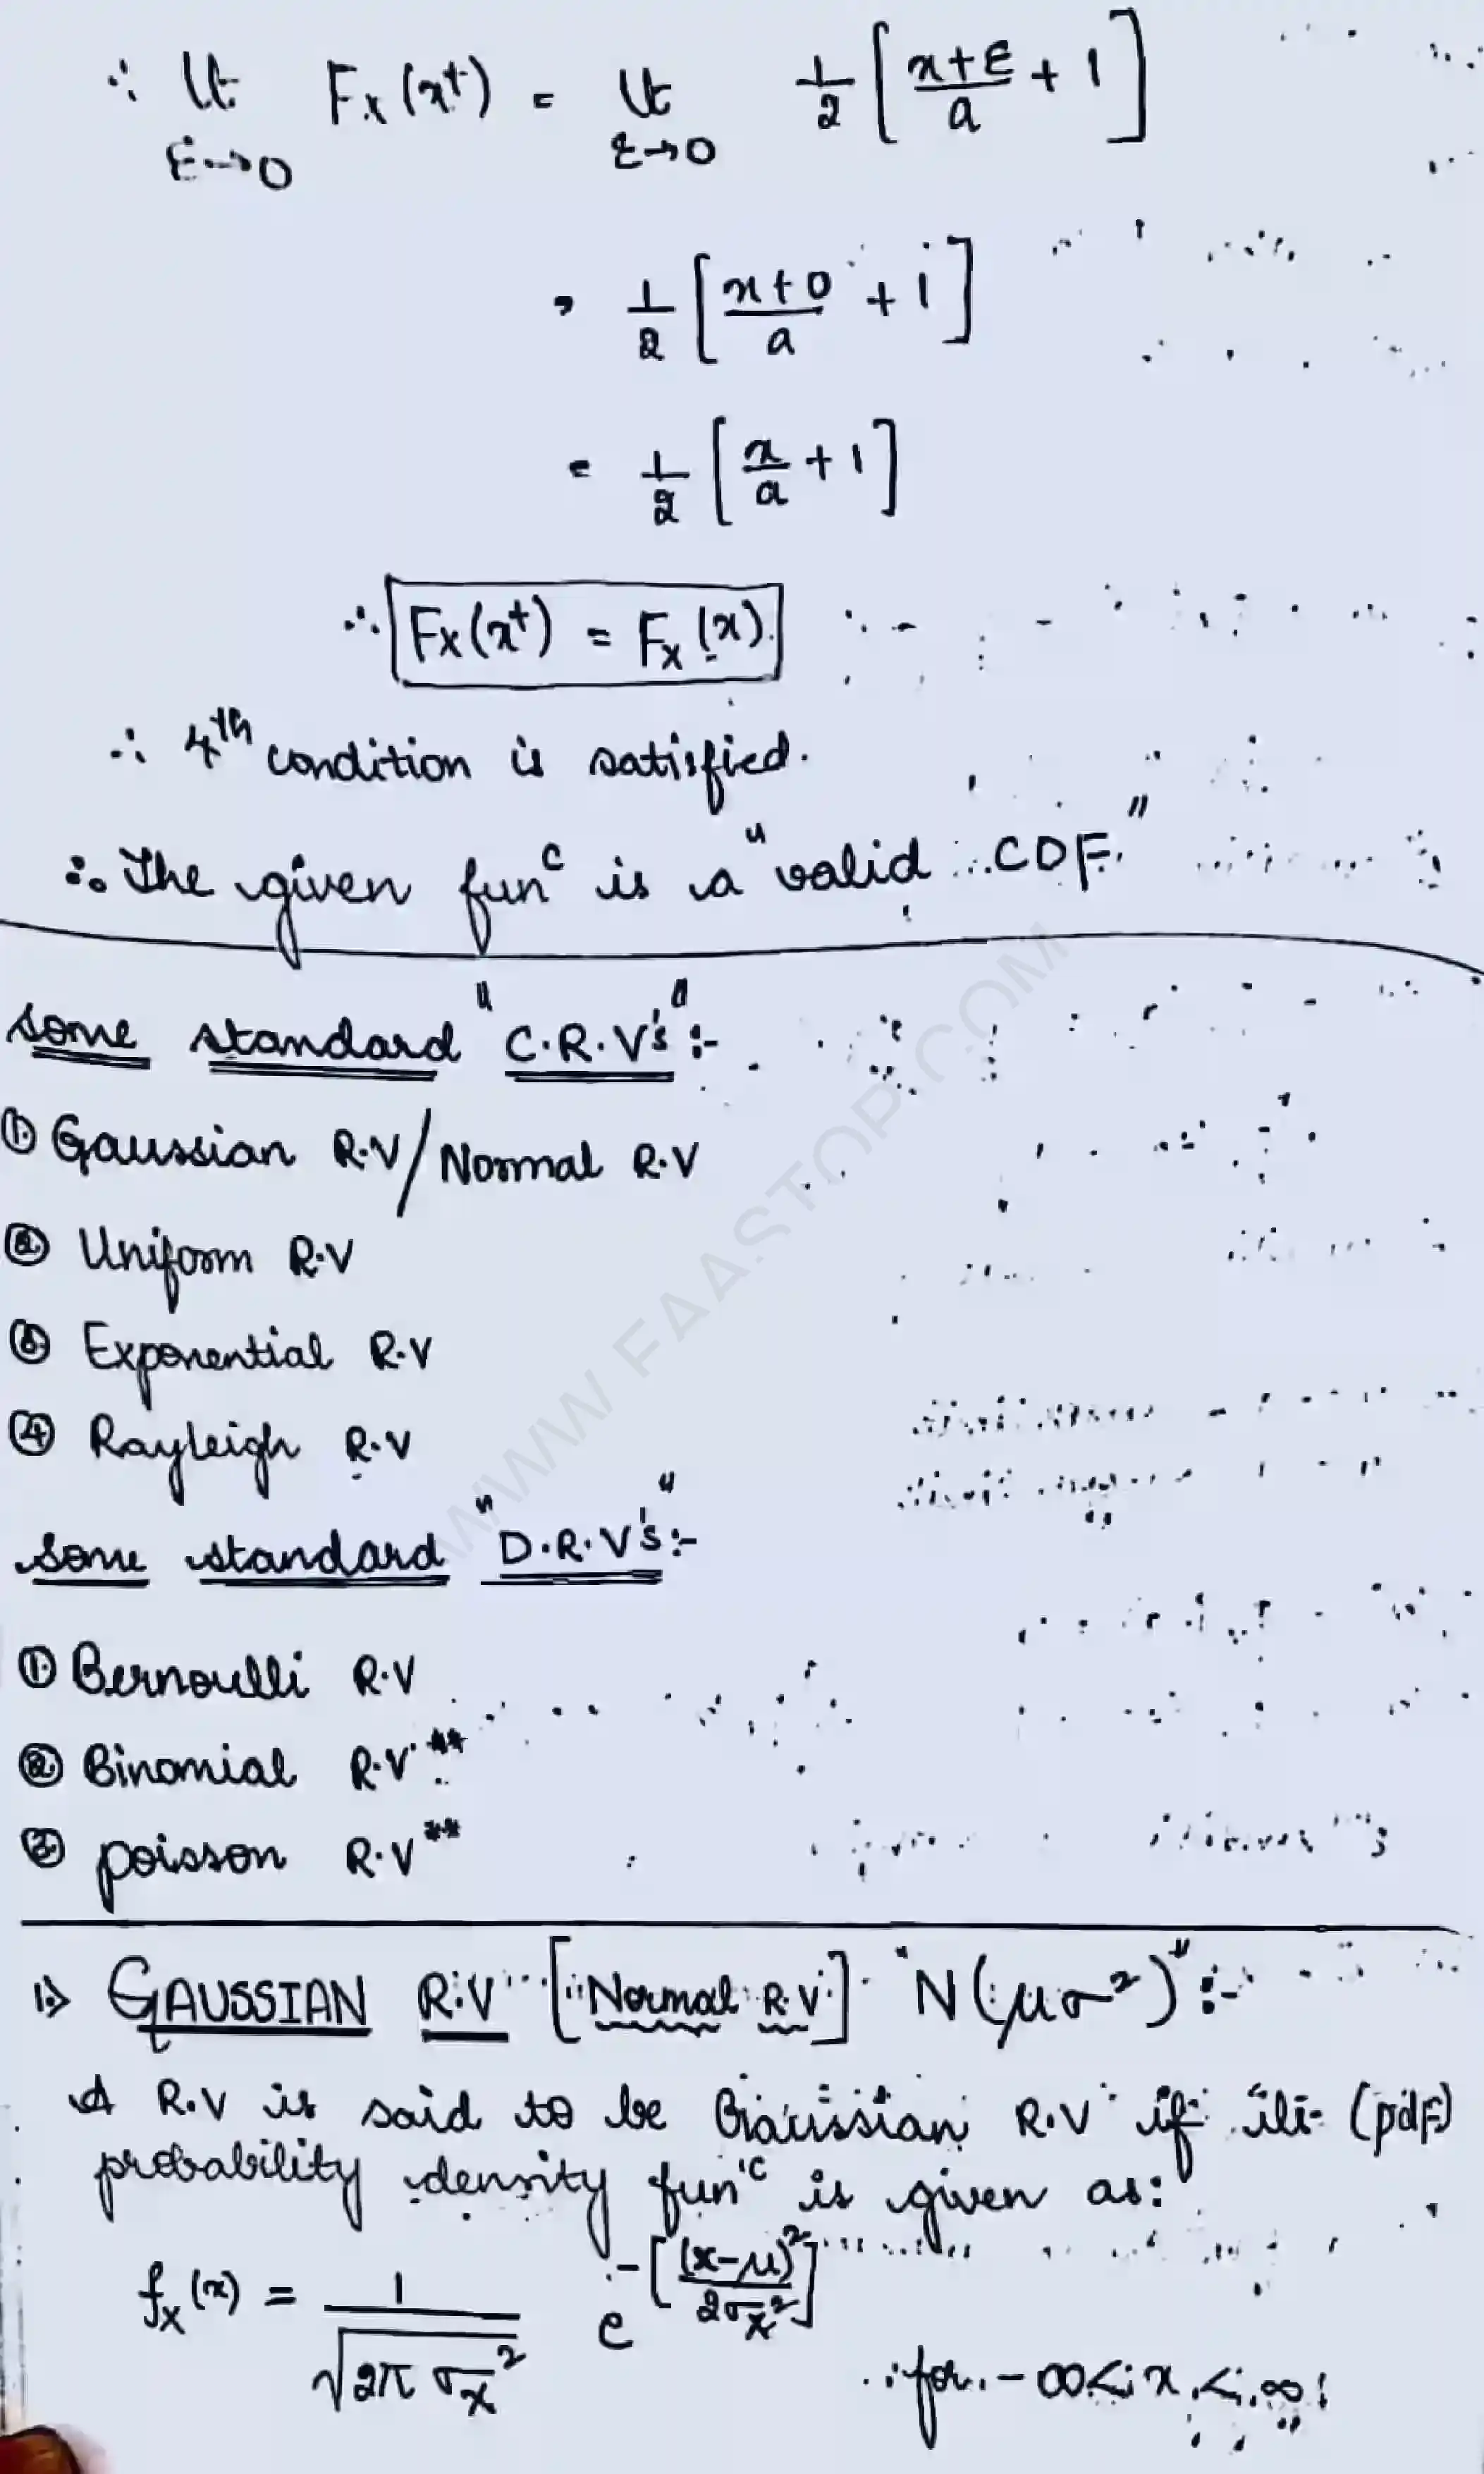 ∴ lt F_X(x⁺) = lt 1/2 [ (x+ε)/a + 1 ]
ε→0 ε→0
= 1/2 [ (x+0)/a + 1 ]
= 1/2 [ x/a + 1 ]
∴ F_X(x⁺) = F_X(x)
∴ 4th condition is satisfied.
∴ The given funᶜ is a "valid CDF."
Some standard "C.R.V's" :-
① Gaussian R.V/Normal R.V
② Uniform R.V
③ Exponential R.V
④ Rayleigh R.V
Some standard "D.R.V's" :-
① Bernoulli R.V
② Binomial R.V **
③ poisson R.V **
1.> GAUSSIAN R.V ["Normal R.V"] "N(μσ²)" :-
A R.V is said to be Gaussian R.V if its (pdf)
probability density funᶜ is given as:
f_X(x) = 1/√(2π σ_x²) e^-[(x-μ)²/2σ_x²]
for -∞ < x < ∞
WWW.FAASTOP.COM